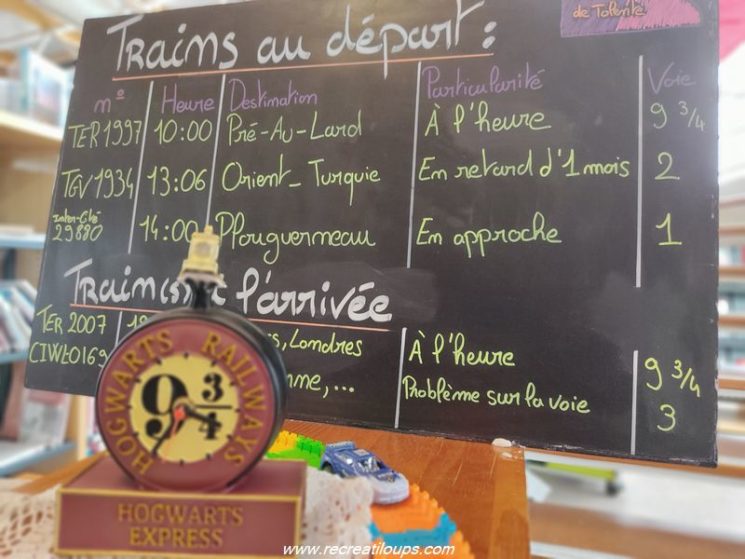 de Tolente
Trains au départ :
n° Heure Destination Particularité Voie
TER 1997 10:00 Pré-Au-Lard À l'heure 9 3/4
TGV 1934 13:06 Orient-Turquie En retard d'1 mois 2
Inter-Cité
29880 14:00 Plouguerneau En approche 1
l'arrivée
TER 2007 Londres À l'heure 9 3/4
CIWL0169 Problème sur la voie 3
HOGWARTS RAILWAYS
9 3/4
HOGWARTS
EXPRESS
www.recreatiloups.com